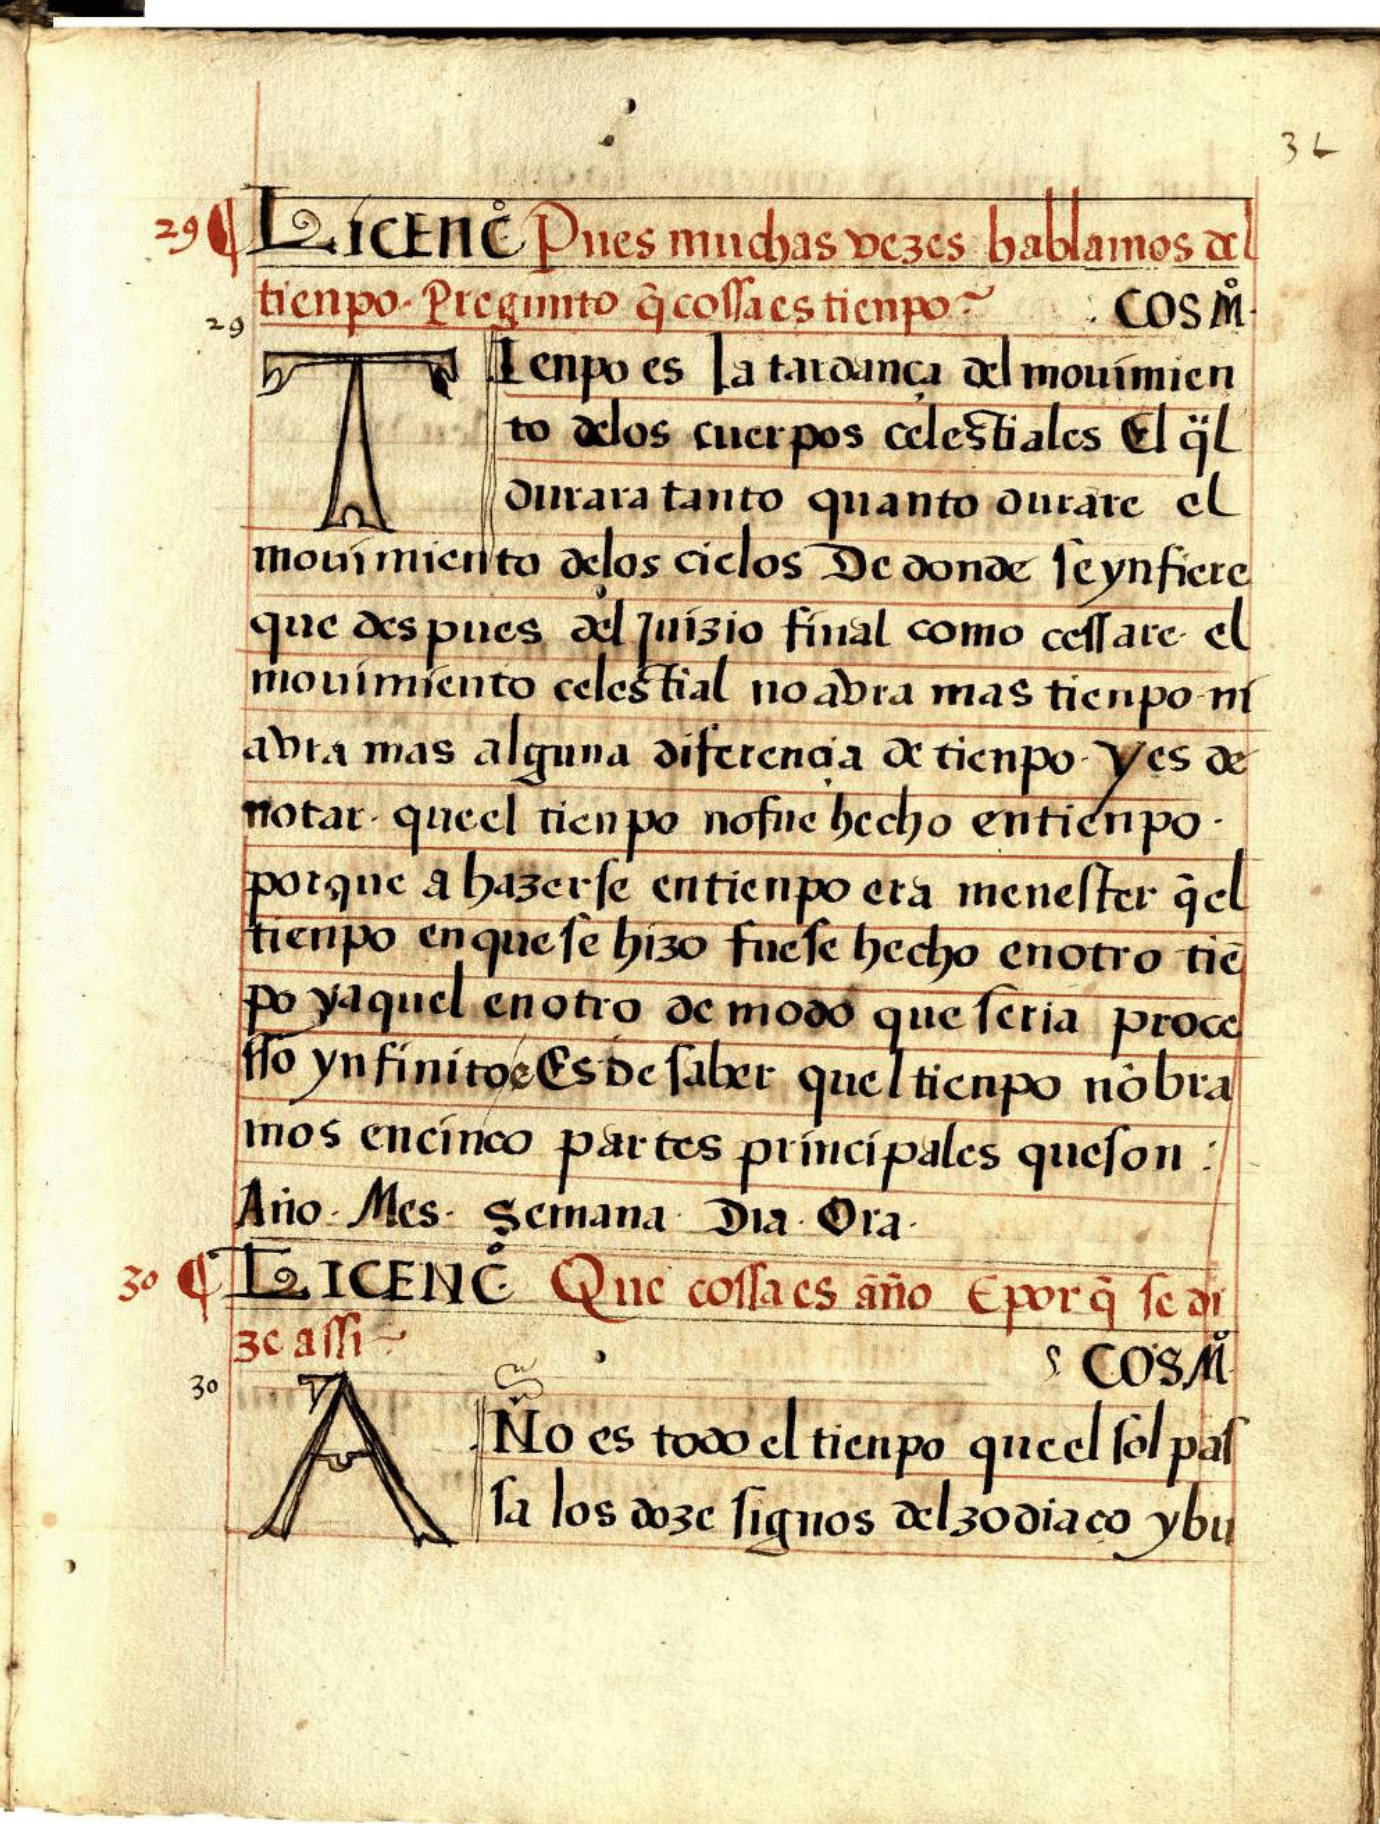 32
29 ¶ LICENC̊ Pues muchas vezes hablamos del
tienpo. Pregunto q̃ cossa es tienpo~ COSM̊.
29
TIenpo es la tardança del mouimien
to delos cuerpos celestiales El q̈l
durara tanto quanto durare el
mouimiento delos cielos De donde se ynfiere
que despues del Juizio final como cessare el
mouimiento celestial no avra mas tienpo ni
avra mas alguna diferençia de tienpo. y es de
notar. que el tienpo no fue hecho en tienpo.
porque a hazerse en tienpo era menester q̃ el
tienpo en que se hizo fuese hecho en otro tiẽ
po y aquel en otro de modo que seria proce
sso ynfinito Es de saber quel tienpo nõbra
mos en cinco partes principales que son :
Año. Mes. Semana. Dia. Ora.
30 ¶ LICENC̊. Que cossa es año E por q̃ se di
ze assi~ COSM̊.
30
AÑo es todo el tienpo que el sol pas
sa los doze signos del zodiaço y bu